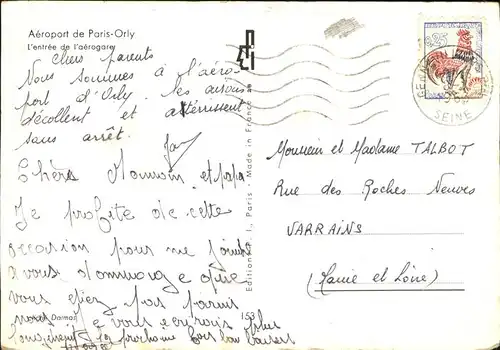 Aéroport de Paris-Orly
L'entrée de l'aérogare
Chers parents
Nous sommes à l'aéro-
port d'Orly. Les avions
décollent et atterrissent
sans arrêt.
Chère Maman et papa
Je profite de cette
occasion pour me joindre
a vous dommage que
vous etiez pas parmi
nous Je vous ecrirais plus
longuement la prochaine fois bon baisers
Dalmas
Editions P. I., Paris - Made in France
153
0,25
SEINE
Monsieur et Madame TALBOT
Rue des Roches Neuves
VARRAINS
(Maine et Loire)